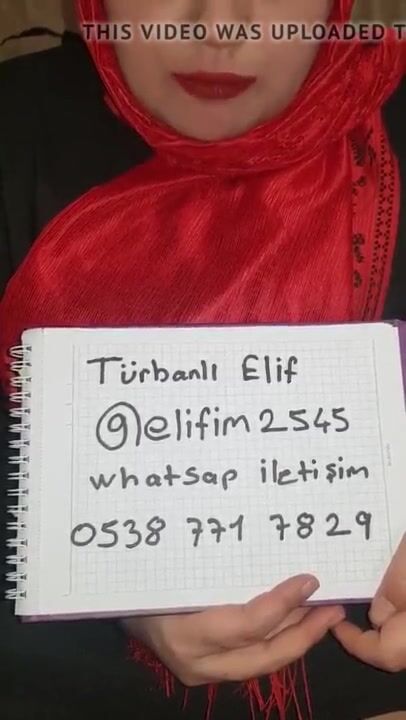 THIS VIDEO WAS UPLOADED T
Türbanlı Elif
@elifim2545
whatsap iletişim
0538 771 7829